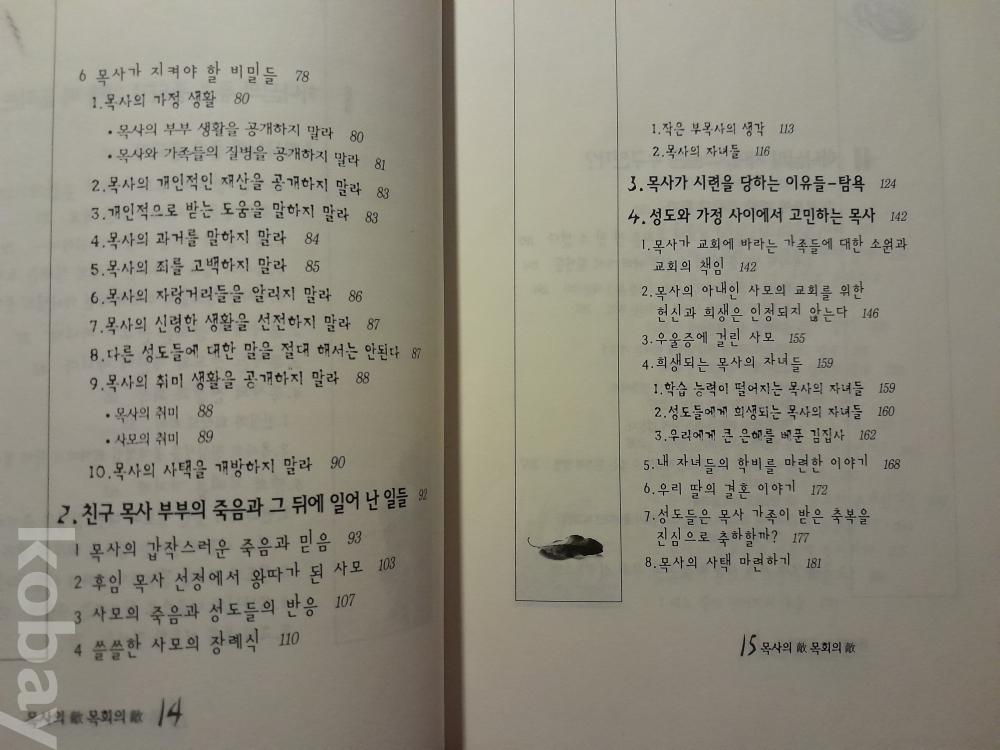 6 목사가 지켜야 할 비밀들 78
1.목사의 가정 생활 80
• 목사의 부부 생활을 공개하지 말라 80
• 목사와 가족들의 질병을 공개하지 말라 81
2.목사의 개인적인 재산을 공개하지 말라 83
3.개인적으로 받는 도움을 말하지 말라 83
4.목사의 과거를 말하지 말라 84
5.목사의 죄를 고백하지 말라 85
6.목사의 자랑거리들을 알리지 말라 86
7.목사의 신령한 생활을 선전하지 말라 87
8.다른 성도들에 대한 말을 절대 해서는 안된다 87
9.목사의 취미 생활을 공개하지 말라 88
• 목사의 취미 88
• 사모의 취미 89
10.목사의 사택을 개방하지 말라 90
2.친구 목사 부부의 죽음과 그 뒤에 일어 난 일들 92
1 목사의 갑작스러운 죽음과 믿음 93
2 후임 목사 선정에서 왕따가 된 사모 103
3 사모의 죽음과 성도들의 반응 107
4 쓸쓸한 사모의 장례식 110
목사의 敵 목회의 敵 14
kobay
1.작은 부목사의 생각 113
2.목사의 자녀들 116
3.목사가 시련을 당하는 이유들-탐욕 124
4.성도와 가정 사이에서 고민하는 목사 142
1.목사가 교회에 바라는 가족들에 대한 소원과
교회의 책임 142
2.목사의 아내인 사모의 교회를 위한
헌신과 희생은 인정되지 않는다 146
3.우울증에 걸린 사모 155
4.희생되는 목사의 자녀들 159
1.학습 능력이 떨어지는 목사의 자녀들 159
2.성도들에게 희생되는 목사의 자녀들 160
3.우리에게 큰 은혜를 베푼 김집사 162
5.내 자녀들의 학비를 마련한 이야기 168
6.우리 딸의 결혼 이야기 172
7.성도들은 목사 가족이 받은 축복을
진심으로 축하할까? 177
8.목사의 사택 마련하기 181
15 목사의 敵 목회의 敵